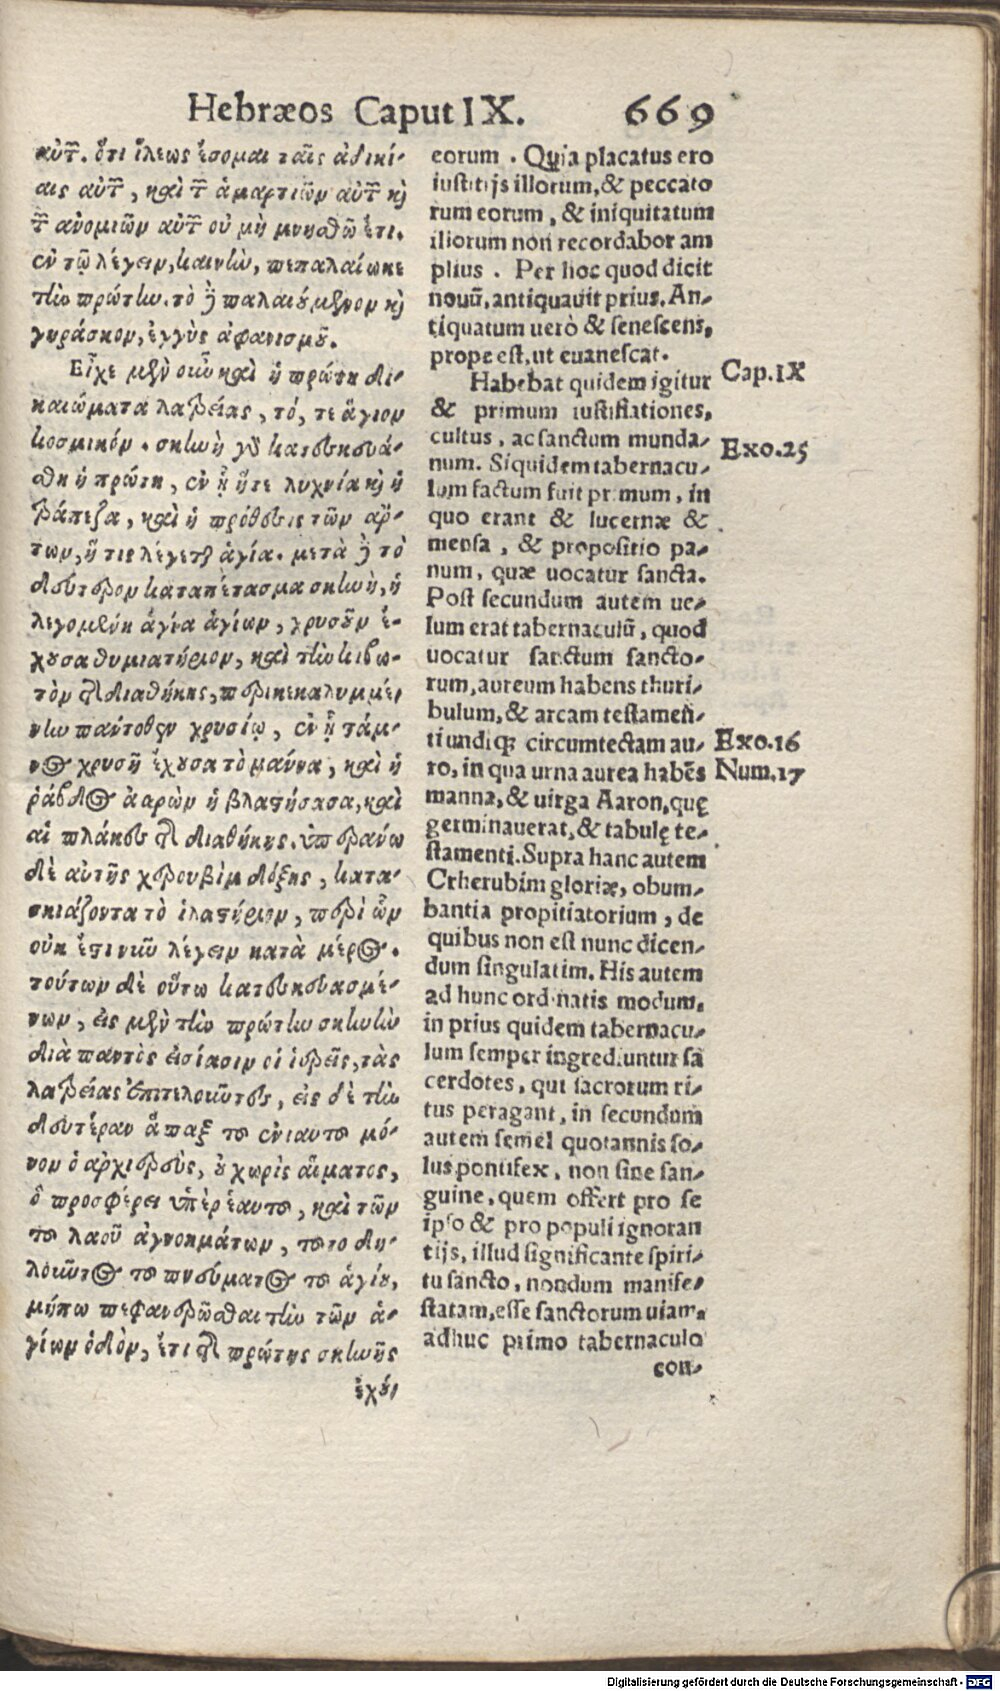 Hebræos Caput IX. 669
αὐτῶν. ὅτι ἵλεως ἔσομαι ταῖς ἀδικί-
αις αὐτῶν, καὶ τῶν ἁμαρτιῶν αὐτῶν καὶ
τῶν ἀνομιῶν αὐτῶν οὐ μὴ μνησθῶ ἔτι.
ἐν τῷ λέγειν, καινὴν, πεπαλαίωκε
τὴν πρώτην. τὸ δὲ παλαιούμενον καὶ
γηράσκον, ἐγγὺς ἀφανισμοῦ.
Εἶχε μὲν οὖν καὶ ἡ πρώτη δι-
καιώματα λατρείας, τό, τε ἅγιον
κοσμικόν. σκηνὴ γὰρ κατεσκευά-
σθη ἡ πρώτη, ἐν ᾗ ἥτε λυχνία καὶ ἡ
τράπεζα, καὶ ἡ πρόθεσις τῶν ἄρ-
των, ἥτις λέγεται ἁγία. μετὰ δὲ τὸ
δεύτερον καταπέτασμα σκηνὴ, ἡ
λεγομένη ἅγια ἁγίων, χρυσοῦν ἔ-
χουσα θυμιατήριον, καὶ τὴν κιβω-
τὸν τῆς διαθήκης, περικεκαλυμμέ-
νην πάντοθεν χρυσίῳ, ἐν ᾗ στάμ-
νος χρυσῆ ἔχουσα τὸ μάννα, καὶ ἡ
ῥάβδος ἀαρὼν ἡ βλαστήσασα, καὶ
αἱ πλάκες τῆς διαθήκης. ὑπεράνω
δὲ αὐτῆς χερουβὶμ δόξης, κατα-
σκιάζοντα τὸ ἱλαστήριον, περὶ ὧν
οὐκ ἔστι νῦν λέγειν κατὰ μέρος.
τούτων δὲ οὕτω κατεσκευασμέ-
νων, εἰς μὲν τὴν πρώτην σκηνὴν
διὰ παντὸς εἰσίασιν οἱ ἱερεῖς, τὰς
λατρείας ἐπιτελοῦντες, εἰς δὲ τὴν
δευτέραν ἅπαξ τοῦ ἐνιαυτοῦ μό-
νον ὁ ἀρχιερεὺς, οὐ χωρὶς αἵματος,
ὃ προσφέρει ὑπὲρ ἑαυτοῦ, καὶ τῶν
τοῦ λαοῦ ἀγνοημάτων, τοῦτο δη-
λοῦντος τοῦ πνεύματος τοῦ ἁγίου,
μήπω πεφανερῶσθαι τὴν τῶν ἁ-
γίων ὁδὸν, ἔτι τῆς πρώτης σκηνῆς
ἐχού-
eorum. Quia placatus ero
iustitijs illorum, & peccato
rum eorum, & iniquitatum
illorum non recordabor am
plius. Per hoc quod dicit
nouū, antiquauit prius. An-
tiquatum uerò & senescens,
prope est, ut euanescat.
Habebat quidem igitur
& primum iustifiationes,
cultus, ac sanctum munda-
num. Siquidem tabernacu-
lum factum fuit primum, in
quo erant & lucernæ &
mensa, & propositio pa-
num, quæ uocatur sancta.
Post secundum autem ue-
lum erat tabernaculū, quod
uocatur sanctum sancto-
rum, aureum habens thuri-
bulum, & arcam testamen-
ti undiq; circumtectam au-
ro, in qua urna aurea habēs
manna, & uirga Aaron, quę
germinauerat, & tabulę te-
stamenti. Supra hanc autem
Crherubim gloriæ, obum-
bantia propitiatorium, de
quibus non est nunc dicen-
dum singulatim. His autem
ad hunc ordinatis modum,
in prius quidem tabernacu-
lum semper ingrediuntur sa
cerdotes, qui sacrorum ri-
tus peragant, in secundum
autem semel quotannis so-
lus pontifex, non sine san-
guine, quem offert pro se
ipso & pro populi ignoran
tijs, illud significante spiri-
tu sancto, nondum manife-
statam, esse sanctorum uiam,
adhuc primo tabernaculo
con-
Cap. IX
Exo. 25
Exo. 16
Num. 17
Digitalisierung gefördert durch die Deutsche Forschungsgemeinschaft - DFG